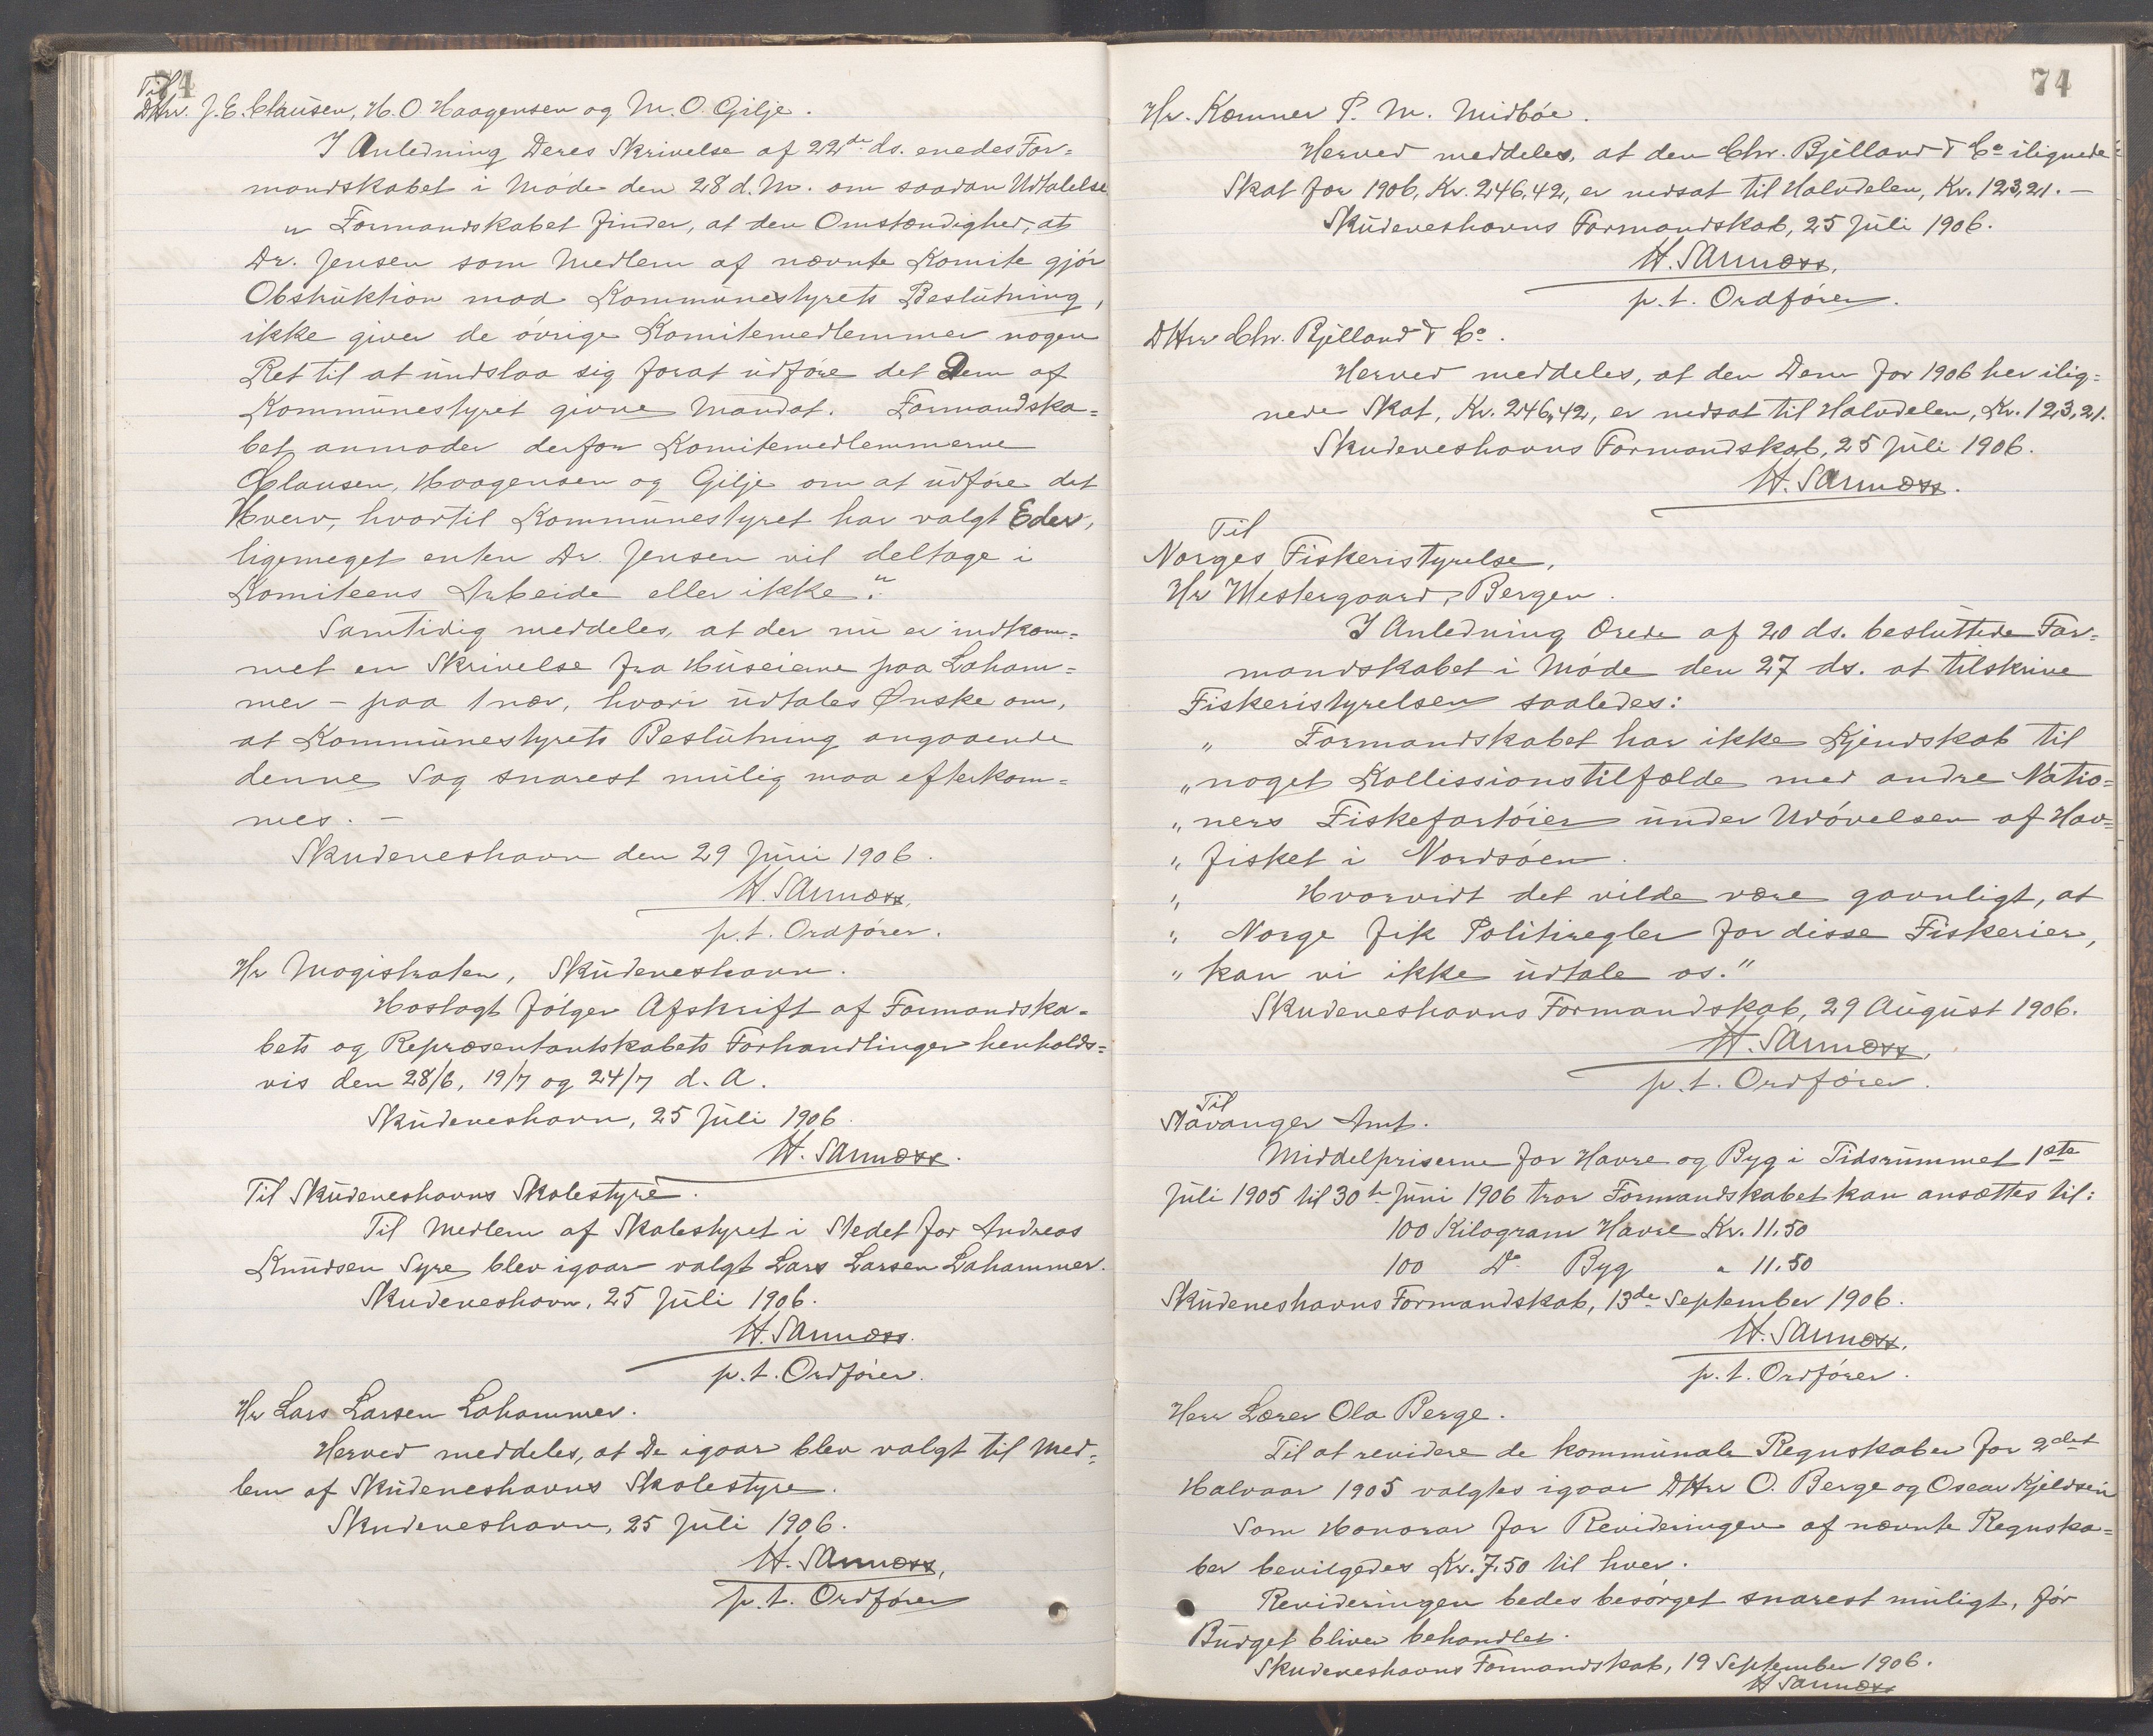 74
Til
DHrr. J. E. Clausen, H. O. Haagensen og M. O. Gilje.
I Anledning Deres Skrivelse af 22de ds. enedes For=
mandskabet i Møde den 28 d. M. om saadan Udtalelse
„ Formandskabet finder, at den Omstændighed, at
Dr. Jensen som Medlem af nævnte Komite gjør
Obstruktion mod Kommunestyrets Beslutning,
ikke giver de øvrige Komitemedlemmer nogen
Ret til at undslaa sig forat udføre det Dem af
Kommunestyret givne Mandat. Formandska=
bet anmoder derfor Komitemedlemmerne
Clausen, Haagensen og Gilje om at udføre det
Hverv, hvortil Kommunestyret har valgt Eder,
ligemeget enten Dr. Jensen vil deltage i
Komiteens Arbeide eller ikke."
Samtidig meddeles, at der nu er indkom=
met en Skrivelse fra Huseierne paa Laham=
mer - paa 1 nær, hvori udtales Ønske om,
at Kommunestyrets Beslutning angaaende
denne Sag snarest mulig maa efterkom=
mes. -
Skudeneshavn den 29 Juni 1906.
H. Sannæss,
p.t. Ordfører.
Hr Magistraten, Skudeneshavn.
Hoslagt følger Afskrift af Formandska=
bets og Repræsentantskabets Forhandlinger henholds=
vis den 28/6, 19/7 og 24/7 d. A.
Skudeneshavn, 25 Juli 1906.
H. Sannæss.
Til Skudeneshavns Skolestyre.
Til Medlem af Skolestyret i Stedet for Andreas
Knudsen Syre blev igaar valgt Lars Larsen Lahammer.
Skudeneshavn, 25 Juli 1906.
H. Sannæss.
p.t. Ordfører.
Hr Lars Larsen Lahammer.
Herved meddeles, at De igaar blev valgt til Med=
lem af Skudeneshavns Skolestyre.
Skudeneshavn, 25 Juli 1906.
H. Sannæss,
p.t. Ordfører
74
Hr. Kæmner P. M. Midbøe.
Herved meddeles, at den Chr. Bjelland & Co ilignede
Skat for 1906, Kr. 246,42, er nedsat til Halvdelen, Kr. 123,21. -
Skudeneshavns Formandskab, 25 Juli 1906.
H. Sannæss,
p.t. Ordfører.
DHrr Chr. Bjelland & Co.
Herved meddeles, at den Dem for 1906 her ilig=
nede Skat, Kr. 246,42, er nedsat til Halvdelen, Kr. 123,21.
Skudeneshavns Formandskab, 25 Juli 1906.
H. Sannæss.
Til
Norges Fiskeristyrelse,
Hr Westergaard, Bergen.
I Anledning Ærede af 20 ds. besluttede For=
mandskabet i Møde den 27 ds. at tilskrive
Fiskeristyrelsen saaledes:
„ Formandskabet har ikke Kjendskab til
„ noget Kollissionstilfælde med andre Natio=
„ ners Fiskefartøier under Udøvelsen af Hav=
„ fisket i Nordsøen.
„ Hvorvidt det vilde være gavnligt, at
„ Norge fik Politiregler for disse Fiskerier,
„ kan vi ikke udtale os."
Skudeneshavns Formandskab, 29 August 1906.
H. Sannæss,
p.t. Ordfører.
Til
Stavanger Amt.
Middelpriserne for Havre og Byg i Tidsrummet 1ste
Juli 1905 til 30te Juni 1906 tror Formandskabet kan ansættes til:
100 Kilogram Havre Kr. 11.50
100 Do Byg „ 11.50
Skudeneshavns Formandskab, 13de September 1906.
H. Sannæss,
p.t. Ordfører.
Herr Lærer Ola Berge.
Til at revidere de kommunale Regnskaber for 2det
Halvaar 1905 valgtes igaar DHrr O. Berge og Oscar Kjeldsen
Som Honorar for Revideringen af nævnte Regnska=
ber bevilgedes Kr. 7,50 til hver.
Revideringen bedes besørget snarest muligt, før
Budget bliver behandlet.
Skudeneshavns Formandskab, 19 September 1906.
H Sannæss